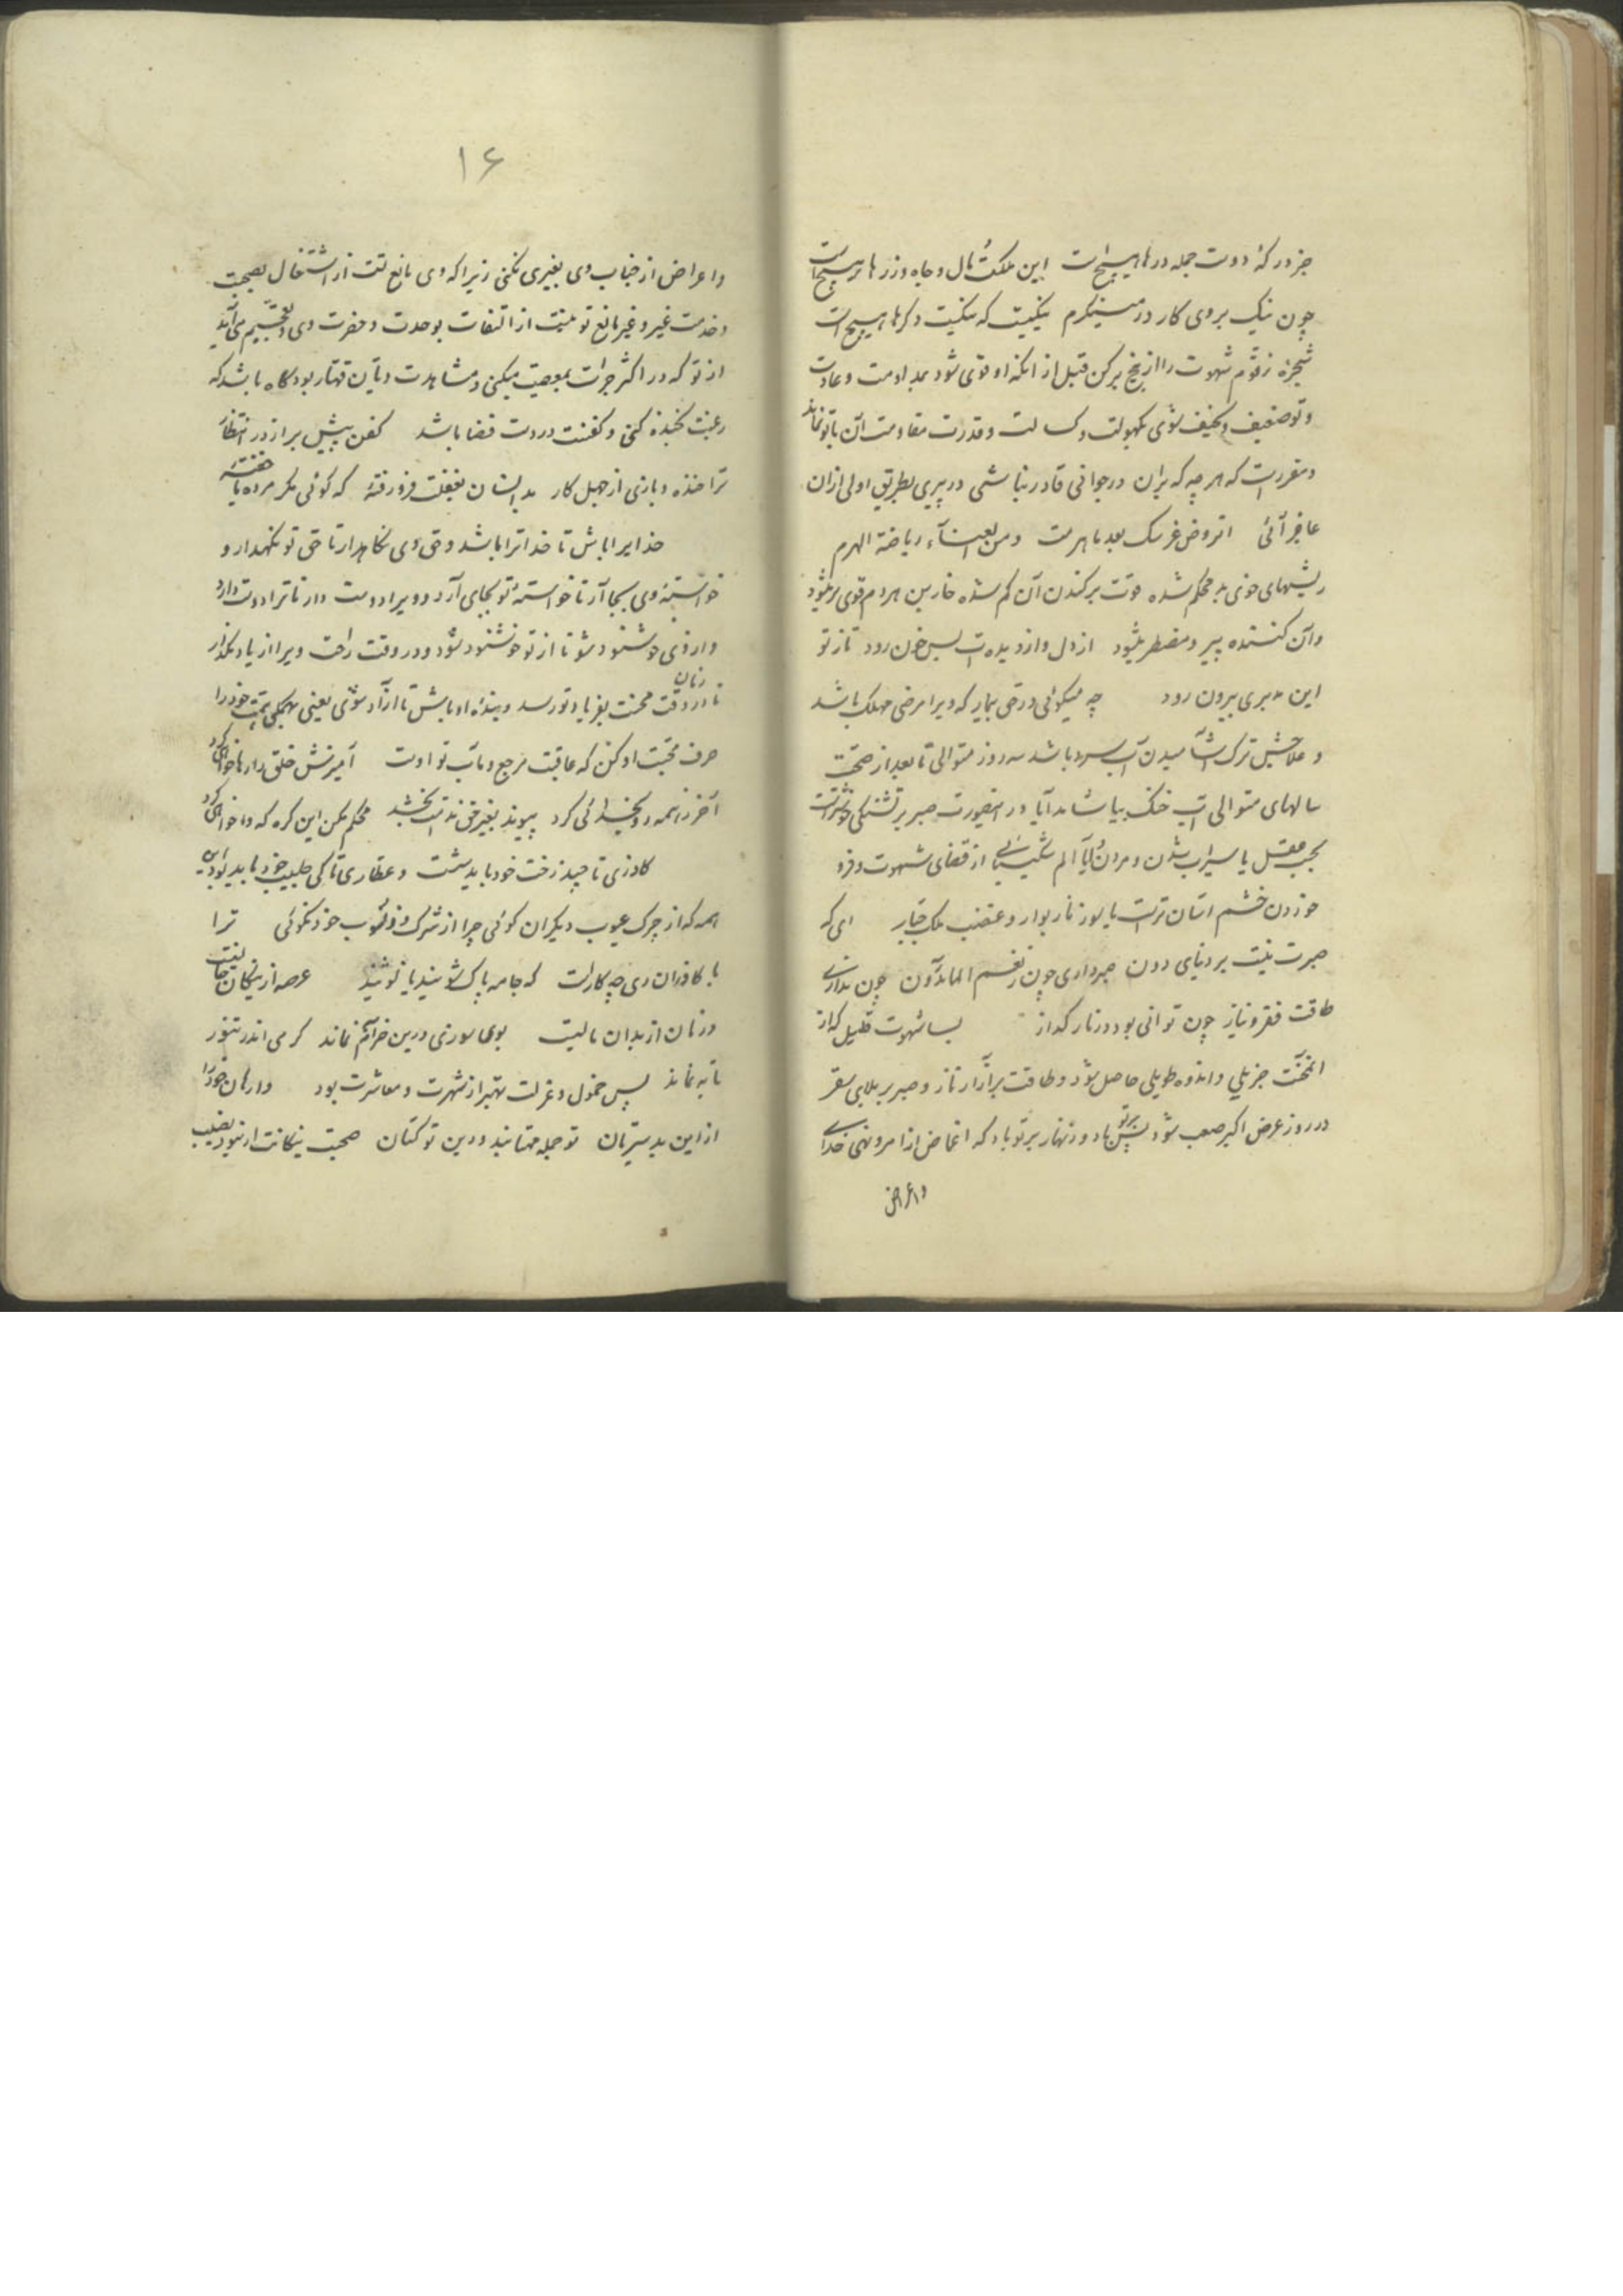 جز درکه دوست جمله درها هیچ است این ملکت و مال و جاه و زرها هیچ است
چون نیک بروی کار در مینگرم یکیست که نیکیست دگرها هیچ است
شجره زقوم شهوت را از بیخ برکن قبل از انکه او قوی شود بمداومت و عادت
و تو ضعیف و نحیف شوی بکهولت و کسالت و قدرت مقاومت آن با تو نماند
و مقررست که هر چه که بران در جوانی قادر نباشی در پیری بطریق اولی ازان
عاجز آئی ومن العناء ریاضة الهرم
ریشهای خوی بد محکم شده قوت برکندن آن کم شده خاربن هر دم قوی تر میشود
وان کننده پیر و مضطر میشود از دل و از دیده ات بس خون رود تا ز تو
این مدبری بیرون رود چه میکوئی در حق بیمار که ویرا مرضی مهلک باشد
و علاجش ترک آشامیدن آب سرد باشد سه روز متوالی تا بعد از صحت
سالهای متوالی آب خنک بیاشامد آیا در اینصورت صبر بر تشنگی خوشترست
بحسب عقل یا سیراب شدن و مردن آیا الم شکیبائی از قضای شهوت و فرو
خوردن خشم آسان ترست یا سوز نار بوار و غضب ملک جبار ای که
صبرت نیست بر دنیای دون صبر داری چون ز نعم الماهدون چون نداری
طاقت فقر و نیاز چون توانی بود در نار کداز بسا شهوت قلیل که از
آن محنت جزیلی و اندوه طویلی حاصل شود و طاقت بر آزار ناز و صبر بر بلای سقر
در روز عرض اکبر صعب شود پس بر تو باد و زنهار بر تو باد که اغماض از امر و نهی خدای
واعراض
۱۶
واعراض از جناب وی بغیری نکنی زیرا که وی مانع تست از اشتغال بصحبت
و خدمت غیر و غیر مانع تو نیست از التفات بوحدت و حضرت وی و تعجبم می آید
از تو که در اکثر جرات بمعصیت میکنی و مشاهدت دیان قهار بود کاه باشد که
رغبت بخنده کنی و کفنت در دست قضا باشد کفن پیش بزاز در انتظار
ترا خنده و بازی از جهل کار بدانسان بغفلت فرو رفته که کوئی مکر مرده یا خفته
خدایرا باش تا خدا ترا باشد و حق وی نکاهدار تا حق تو نکهدارد و
خواسته وی بجا آر تا خواسته تو بجای آرد و ویرا دوست دار تا ترا دوست دارد
و از وی خوشنود شو تا از تو خوشنود شود و در وقت راحت ویرا از یاد مکذار
تا در وقت محنت بفریاد تو رسد و بنده او باش تا آزاد شوی یعنی بهمکی همت خود را
صرف محبت او کن که عاقبت مرجع و مآب تو اوست آمیزش خلق را رها خواهی کرد
آخر ز همه رو بخدا ئی کرد پیوند بغیر حق ندامت بخشد محکم مکن این کره که وا خواهی کرد
کاذری تا چند رخت خود باید شست و عطاری تا کی طیب خود باید بود این
همه که از چرک عیوب دیکران کوئی چرا از شرک و ذنوب خود نکوئی ترا
با کاذران وی چه کارست که جامه پاک شویند یا نشویند عرصه از نیکان خالیست
و زمان از بدان مالیست بویا سوزی درین خرابم نماند کرمی اندر تنور
تابه نماند پس خمول و عزلت بهتر از شهرت و معاشرت بود وارهان خود را
از این بدسیرتان تو جمله مهتابند و دین تو کتان صحبت نیکانت ار نبود نصیب